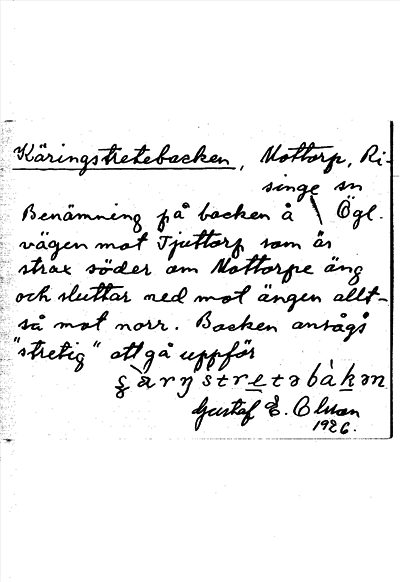 Käringstretebacken, Mottorp, Ri-
singe sn
Benämning på backen å Ögl.
vägen mot Tjuttorp som är
strax söder om Mottorpe äng
och sluttar ned mot ängen allt-
så mot norr. Backen ansågs
"stretig" att gå uppför
Gustaf E. Olsson
1926.